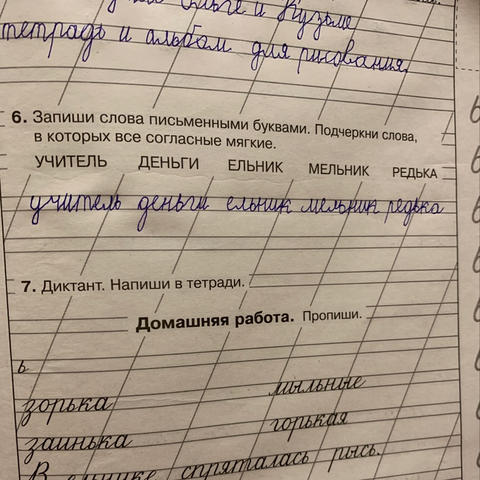 Ольге и Кузьме
тетрадь и альбом для рисования,
6. Запиши слова письменными буквами. Подчеркни слова,
в которых все согласные мягкие.
УЧИТЕЛЬ ДЕНЬГИ ЕЛЬНИК МЕЛЬНИК РЕДЬКА
учитель деньги ельник мельник редька
7. Диктант. Напиши в тетради.
Домашняя работа. Пропиши.
ь
зорька мыльные
заинька горькая
В ельнике спряталась рысь.